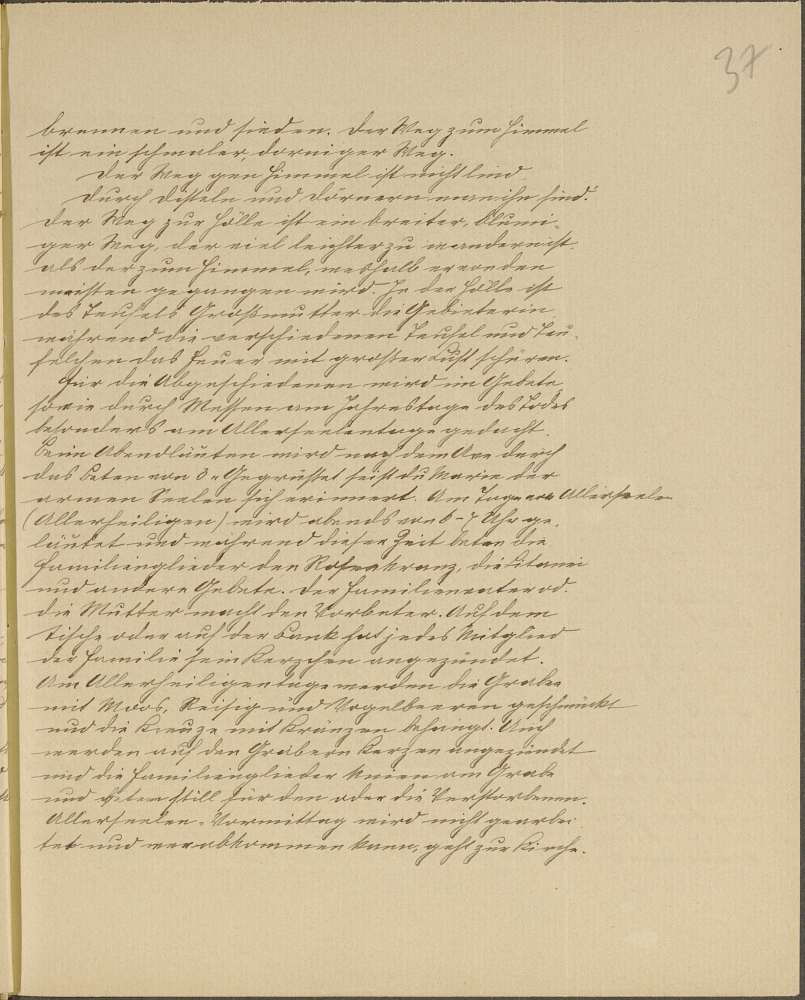 37
brennen und sieden. Der Weg zum Himmel
ist ein schmaler, dorniger Weg.
Der Weg gen Himmel ist nicht lind
Durch Disteln und Dörnern man ihn find.
Der Weg zur Hölle ist ein breiter, blumi-
ger Weg, der viel leichter zu wandern ist.
als der zum Himmel, weshalb er von den
meisten gegangen wird. In der Hölle ist
des Teufels Großmutter die Gebieterin,
während die verschiedenen Teufel und Teu-
felchen das Feuer mit großer Lust schüren.
Für die Abgeschiedenen wird im Gebete,
sowie durch Messen am Jahrestage des Todes
besonders am Allerseelentage gedacht.
Beim Abendläuten wird nach dem Ave durch
das Beten von 3 „Gegrüsset seist du Maria der
armen Seelen sich erinnert. Am Tage vor Allerseelen
(Allerheiligen) wird abends von 6-7 Uhr ge-
läutet und während dieser Zeit beten die
Familienglieder den Rosenkranz, die Litanei
und andere Gebete. Der Familienvater od.
die Mutter macht den Vorbeter. Auf dem
Tische oder auf der Bank hat jedes Mitglied
der Familie sein Kerzchen angezündet.
Am Allerheiligentage werden die Gräber
mit Moos, Reisig und Vogelbeeren geschmückt
und die Kreuze mit Kränzen behängt. Auch
werden auf den Gräbern Kerzen angezündet
und die Familienglieder knien am Grabe
und beten still für den oder die Verstorbenen.
Allerseelen-Vormittag wird nicht gearbei-
tet und wer abkommen kann, geht zur Kirche.